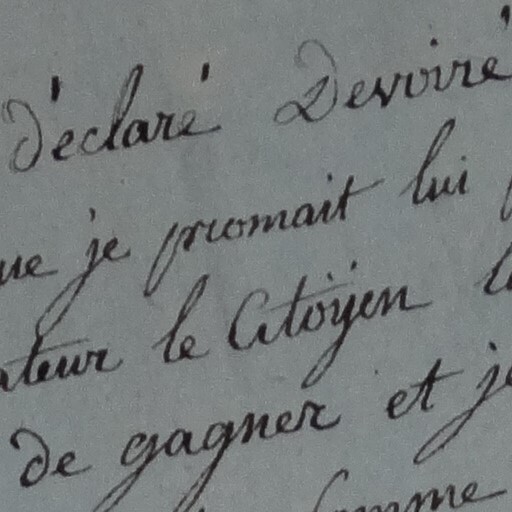 déclaré Devoiré
je promait lui
ateur le Citoÿen
de gagner et je